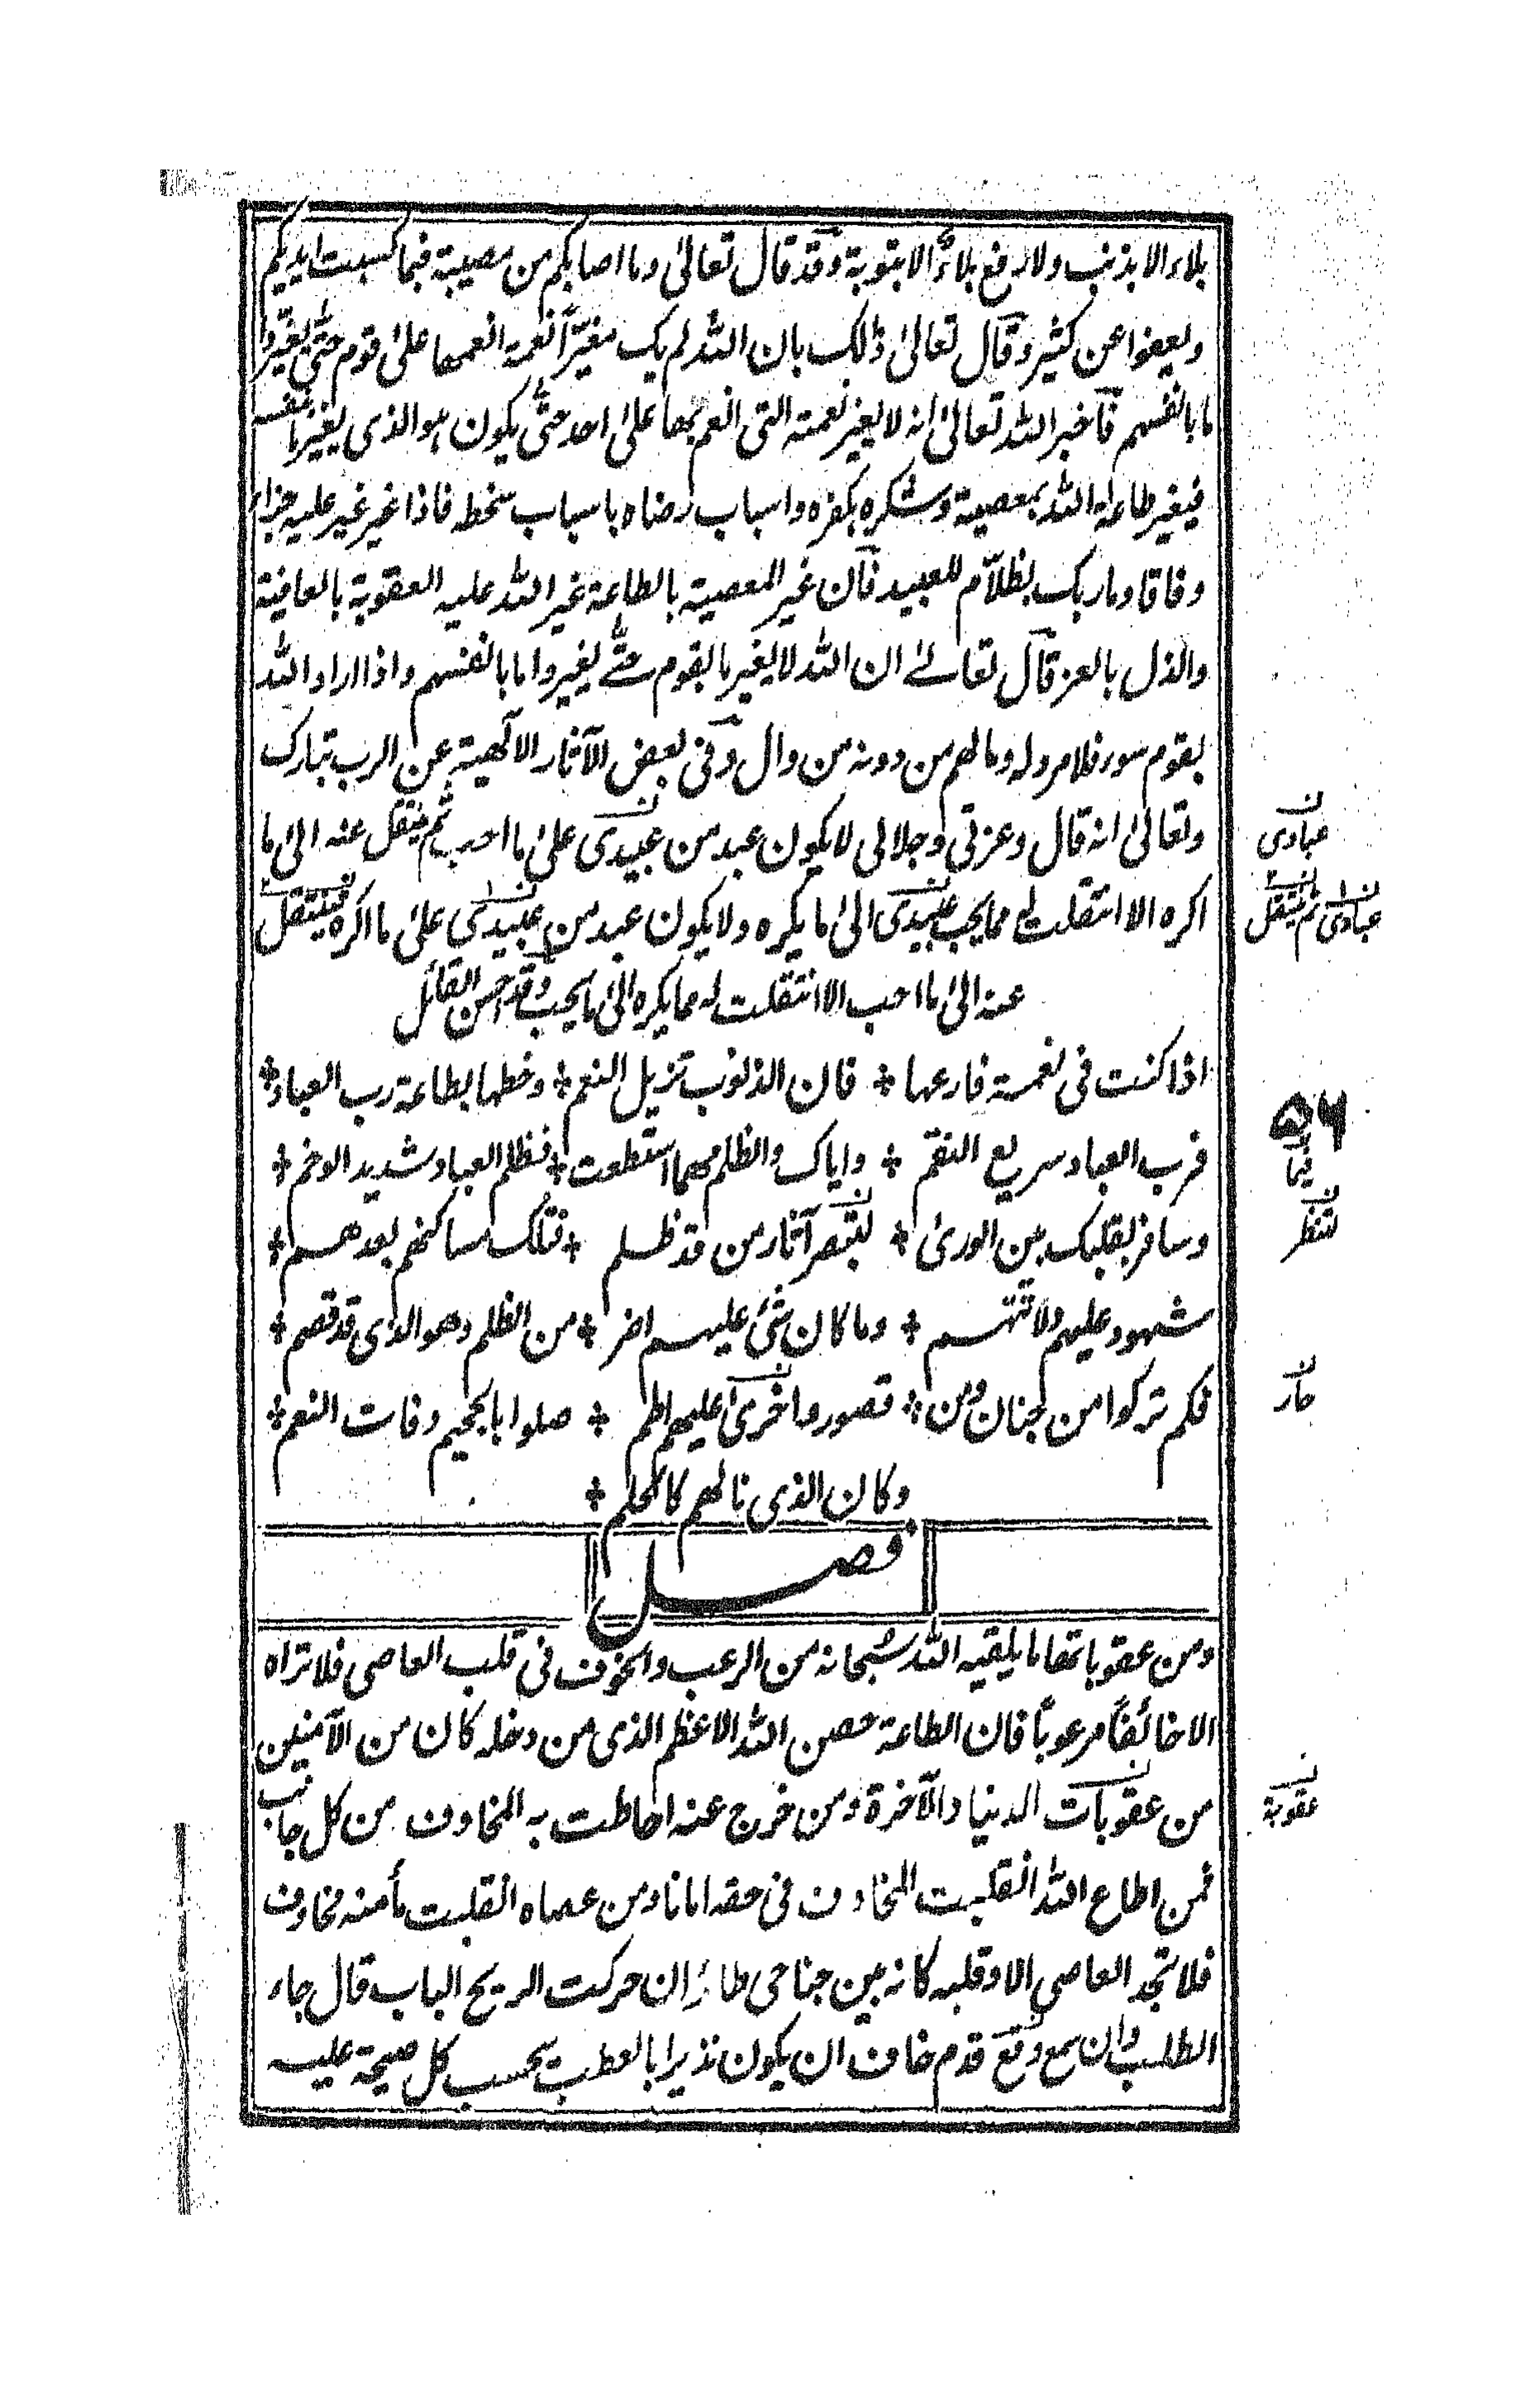 بلاء الا بذنب ولا رفع بلاءٌ الا بتوبة وقد قال تعالىٰ وما اصابكم من مصيبة فبما كسبت ايديكم
ويعفوا عن كثير وقال تعالىٰ ذٰلك بان الله لم يك مغيّراً نعمة انعمها علىٰ قوم حتّٰى يغيّروا
ما بانفسهم فاخبر الله تعالىٰ انه لا يغير نعمته التى انعم بها علىٰ احد حتّٰى يكون هو الذى يغير ما بنفسه
فيغير طاعة الله بمعصية وشكره بكفره واسباب رضاه باسباب سخطه فاذا غير غير عليه جزاء
وفاقا وما ربك بظلاّم للعبيد فان غير المعصية بالطاعة غير الله عليه العقوبة بالعافية
والذل بالعز قال تعالےٰ ان الله لا يغير ما بقوم حتّٰے يغيروا ما بانفسهم واذا اراد الله
بقوم سوء فلا مرد له وما لهم من دونه من وال وفى بعض الآثار الآلهية عن الرب تبارك
وتعالىٰ انه قال وعزتى وجلالى لا يكون عبد من عبيدى علىٰ ما احب ثم ينتقل عنه الىٰ ما
اكره الا انتقلت له مما يحب عبيدى الىٰ ما يكره ولا يكون عبد من عبيدى علىٰ ما اكره فينتقل
عنه الىٰ ما احب الا انتقلت له مما يكره الىٰ ما يحب وقد احسن القائل
اذا كنت فى نعمة فارعها ؞ فان الذنوب تزيل النعم ؞ وحطها بطاعة رب العباد ؞
فرب العباد سريع النقم ؞ واياك والظلم مهما استطعت ؞ فظلم العباد شديد الوخم ؞
وسافر بقلبك بين الورىٰ ؞ لتبصر آثار من قد ظلم ؞ فتلك مساكنهم بعدهم ؞
شهود عليهم ولا تتهم ؞ وما كان شئ عليهم اضر ؞ من الظلم وهو الذى قد قصم ؞
فكم تركوا من جنان ومن ؞ قصور واخرىٰ عليهم اطم ؞ صلوا بالجحيم وفات النعم ؞
وكان الذى نالهم كالحلم ؞
فصل
ومن عقوباتها ما يلقيه الله سُبحانه من الرعب والخوف فى قلب العاصى فلا تراه
الا خائفاً مرعوباً فان الطاعة حصن الله الاعظم الذى من دخله كان من الآمنين
من عقوبات الدنيا والآخرة ومن خرج عنه احاطت به المخاوف من كل جانب
فمن اطاع الله انقلبت المخاوف فى حقه امانا ومن عصاه انقلبت مأمنه مخاوف
فلا تجد العاصى الا وقلبه كانه بين جناحى طائر ان حركت الريح الباب قال جاء
الطلب وان سمع وقع قدم خاف ان يكون نذيرا بالعطب يحسب كل صيحة عليه
عبادى
عبادى ثم ينتقل
٥٦
فيما
لتنظر
حار
عقوبة